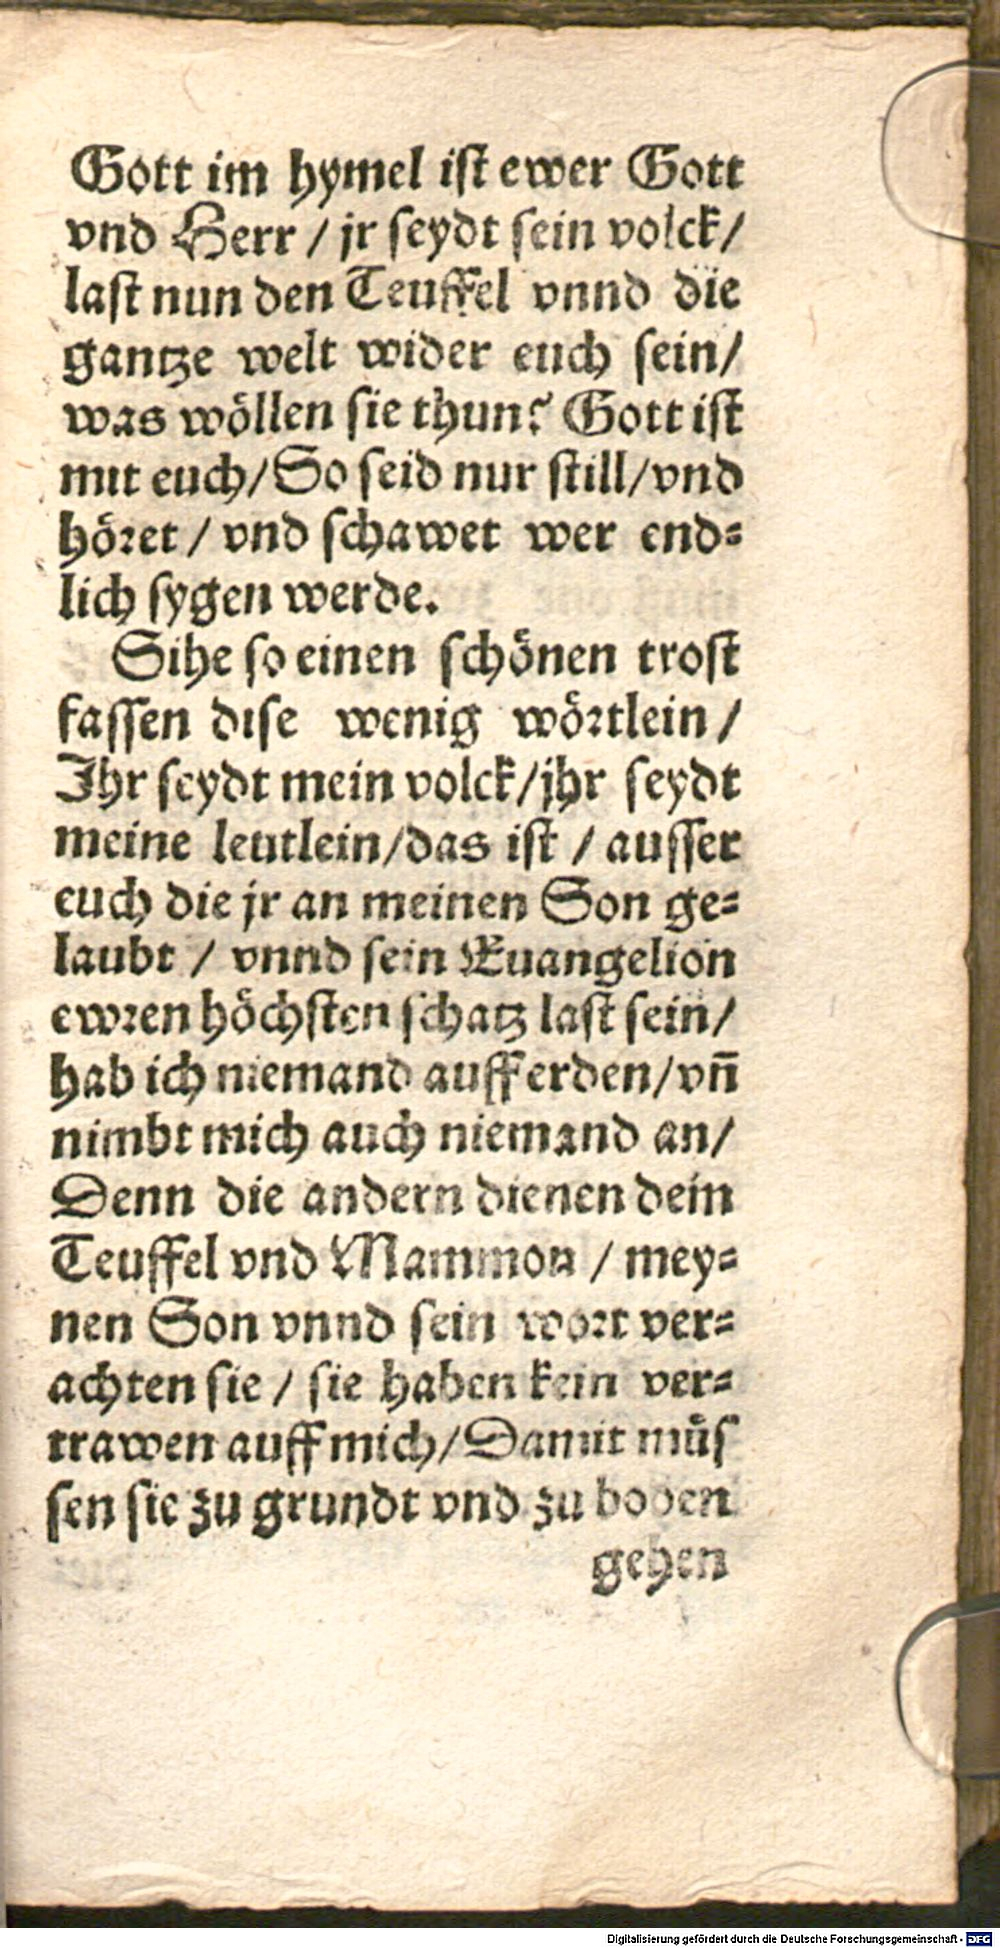 Gott im hymel ist ewer Gott
vnd Herr / jr seydt sein volck /
last nun den Teuffel vnnd die
gantze welt wider euch sein /
was wöllen sie thun? Gott ist
mit euch / So seid nur still / vnd
höret / vnd schawet wer end=
lich sygen werde.
Sihe so einen schönen trost
fassen dise wenig wörtlein /
Ihr seydt mein volck / jhr seydt
meine leutlein / das ist / ausser
euch die jr an meinen Son ge=
laubt / vnnd sein Euangelion
ewren höchsten schatz last sein /
hab ich niemand auff erden / vn̄
nimbt mich auch niemand an /
Denn die andern dienen dem
Teuffel vnd Mammon / mey=
nen Son vnnd sein wort ver=
achten sie / sie haben kein ver=
trawen auff mich / Damit müs
sen sie zu grundt vnd zu boden
gehen
Digitalisierung gefördert durch die Deutsche Forschungsgemeinschaft - DFG